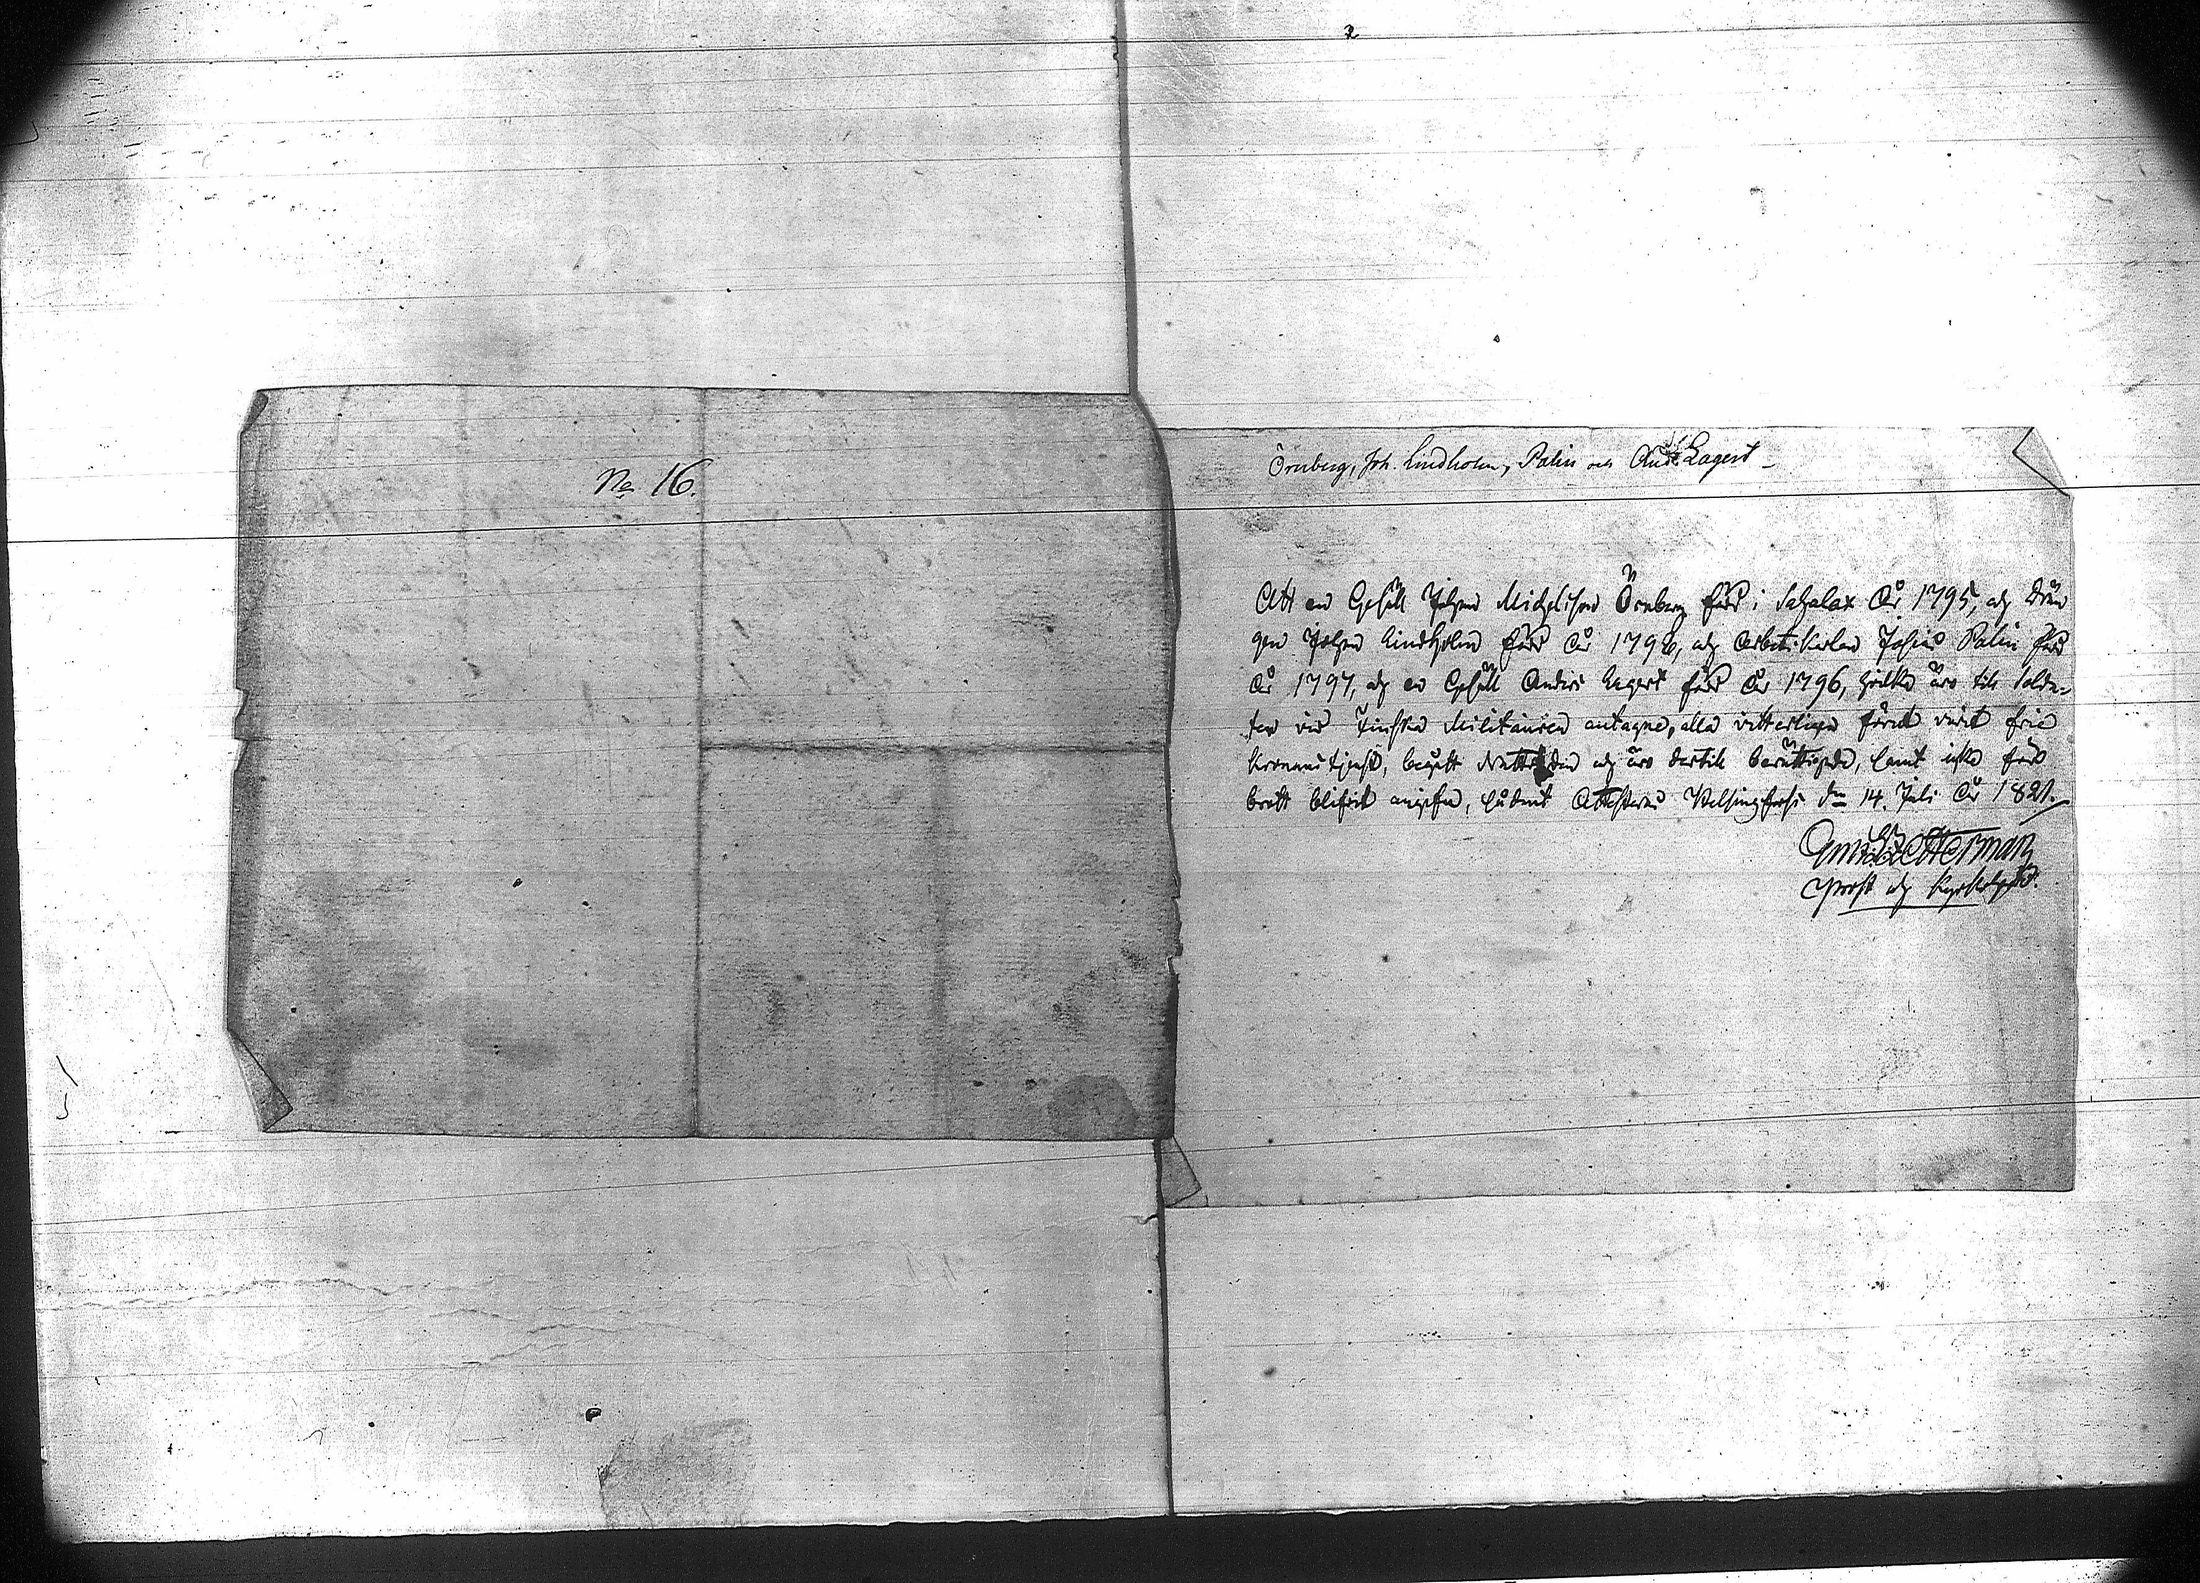 No 16.
Örnberg, Joh. Lindholm, Palin och And: Lagert
Att en Gesäll Johan Michelsson Örnberg född i Sahalax År 1795, och Drän
gen Johan Lindholm född År 1798, och Arbetskarlen Johan Palin född
År 1797, och en Gesäll Anders Lagert född År 1796, hvilka äro till Solda-
ter vid Finska Militairen antagne, alla vitterligen förut varit frie
Kronans tjenst, begått Nattvarden och äro dertill berättigade, samt icke för
brott blifvit angifne, Attesteras Helsingfors den 14. Juli År 1821.
Prost och Kyrkoherde.